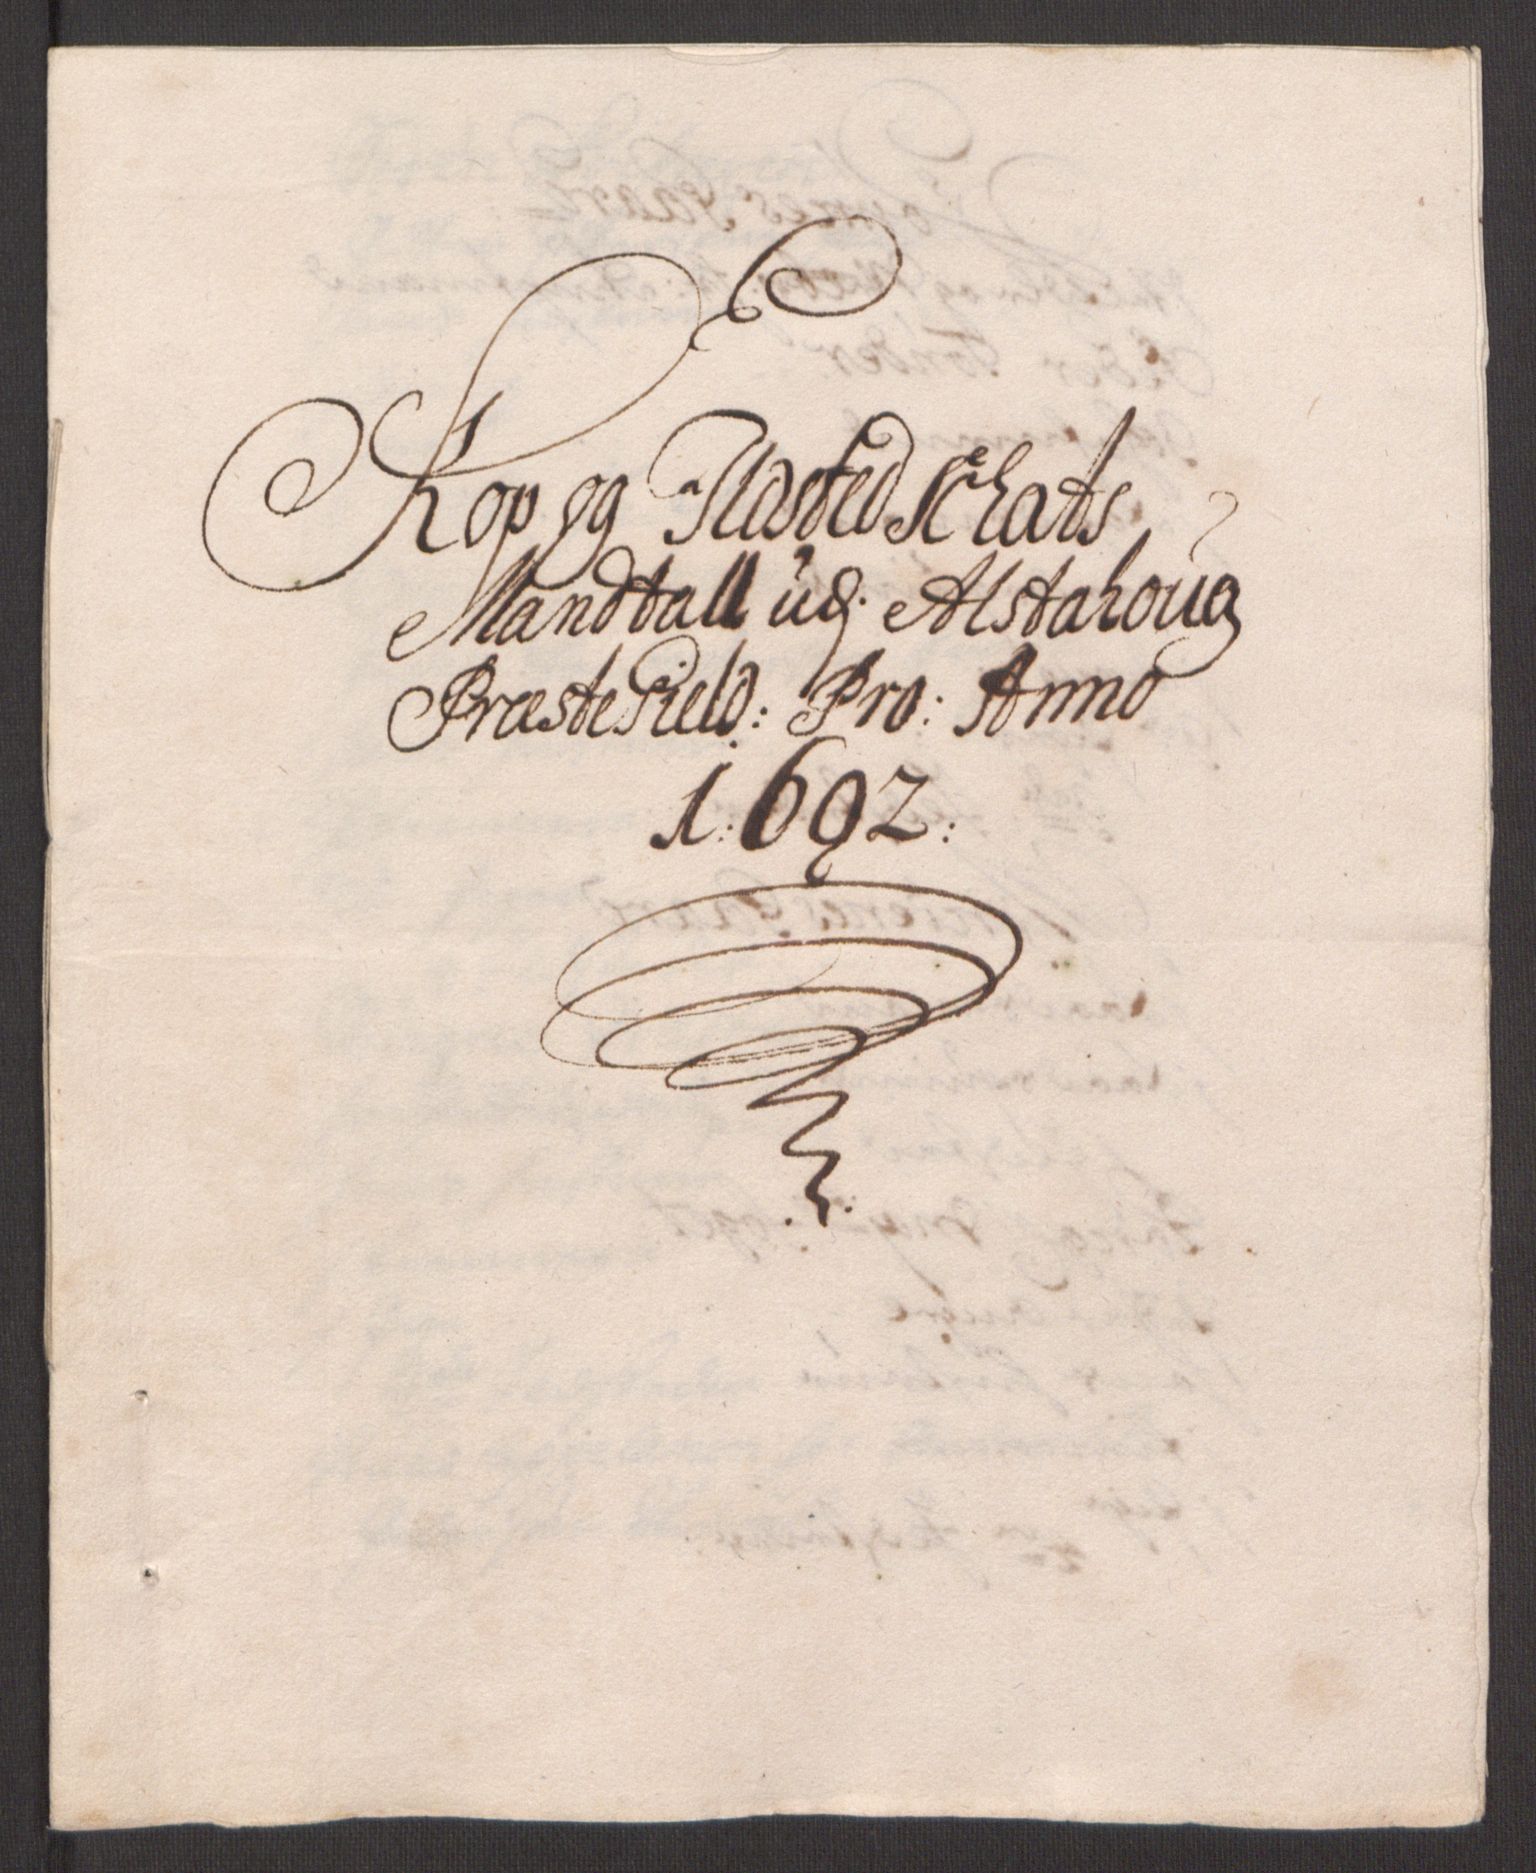 Kop og Ildsted Schats
Mandtall udj Alstahoug
Præstegield: Pro: Anno
1692: